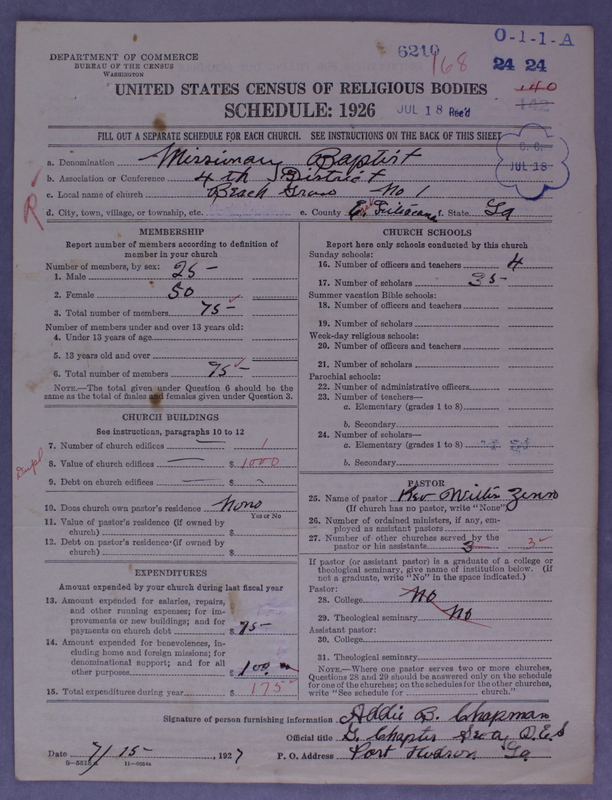 DEPARTMENT OF COMMERCE
BUREAU OF THE CENSUS
WASHINGTON
6210
168
O-1-1-A
24 24
140
UNITED STATES CENSUS OF RELIGIOUS BODIES
SCHEDULE: 1926
JUL 18 Rec'd
FILL OUT A SEPARATE SCHEDULE FOR EACH CHURCH. SEE INSTRUCTIONS ON THE BACK OF THIS SHEET
JUL 18
a. Denomination Missionary Baptist
b. Association or Conference 4th District
c. Local name of church Beach Grove No 1
R
d. City, town, village, or township, etc.
e. County E. Feliciana f. State La
MEMBERSHIP
Report number of members according to definition of
member in your church
Number of members, by sex:
1. Male 25-
2. Female 50
3. Total number of members 75-
Number of members under and over 13 years old:
4. Under 13 years of age
5. 13 years old and over
6. Total number of members 75-
NOTE.—The total given under Question 6 should be the
same as the total of males and females given under Question 3.
CHURCH BUILDINGS
See instructions, paragraphs 10 to 12
7. Number of church edifices 1
8. Value of church edifices $ 1000
9. Debt on church edifices $
10. Does church own pastor's residence? None
Yes or No
11. Value of pastor's residence (if owned by
church) $
12. Debt on pastor's residence (if owned by
church) $
EXPENDITURES
Amount expended by church during last fiscal year
13. Amount expended for salaries, repairs,
and other running expenses; for im-
provements or new buildings; and for
payments on church debt $ 75-
14. Amount expended for benevolences, in-
cluding home and foreign missions; for
denominational support; and for all
other purposes $ 100
15. Total expenditures during year $ 175
CHURCH SCHOOLS
Report here only schools conducted by this church
Sunday schools:
16. Number of officers and teachers 4
17. Number of scholars 35-
Summer vacation Bible schools:
18. Number of officers and teachers
19. Number of scholars
Week-day religious schools:
20. Number of officers and teachers
21. Number of scholars
Parochial schools:
22. Number of administrative officers
23. Number of teachers—
a. Elementary (grades 1 to 8)
b. Secondary
24. Number of scholars—
a. Elementary (grades 1 to 8)
b. Secondary
PASTOR
25. Name of pastor Rev
(If church has no pastor, write "None")
26. Number of ordained ministers, if any, em-
ployed as assistant pastors
27. Number of other churches served by the
pastor or his assistants 3 3
If pastor (or assistant pastor) is a graduate of a college or
theological seminary, give name of institution below. (If
not a graduate, write "No" in the space indicated.)
Pastor:
28. College No
29. Theological seminary No
Assistant pastor:
30. College
31. Theological seminary
NOTE.—Where one pastor serves two or more churches,
Questions 28 and 29 should be answered only on the schedule
for one of the churches; on the schedules for the other churches,
write "See schedule for church."
Signature of person furnishing information Addie B. Chapman
Official title G. Chapter O.E.S
Date 7/15- 1927 P. O. Address Port Hudson, La